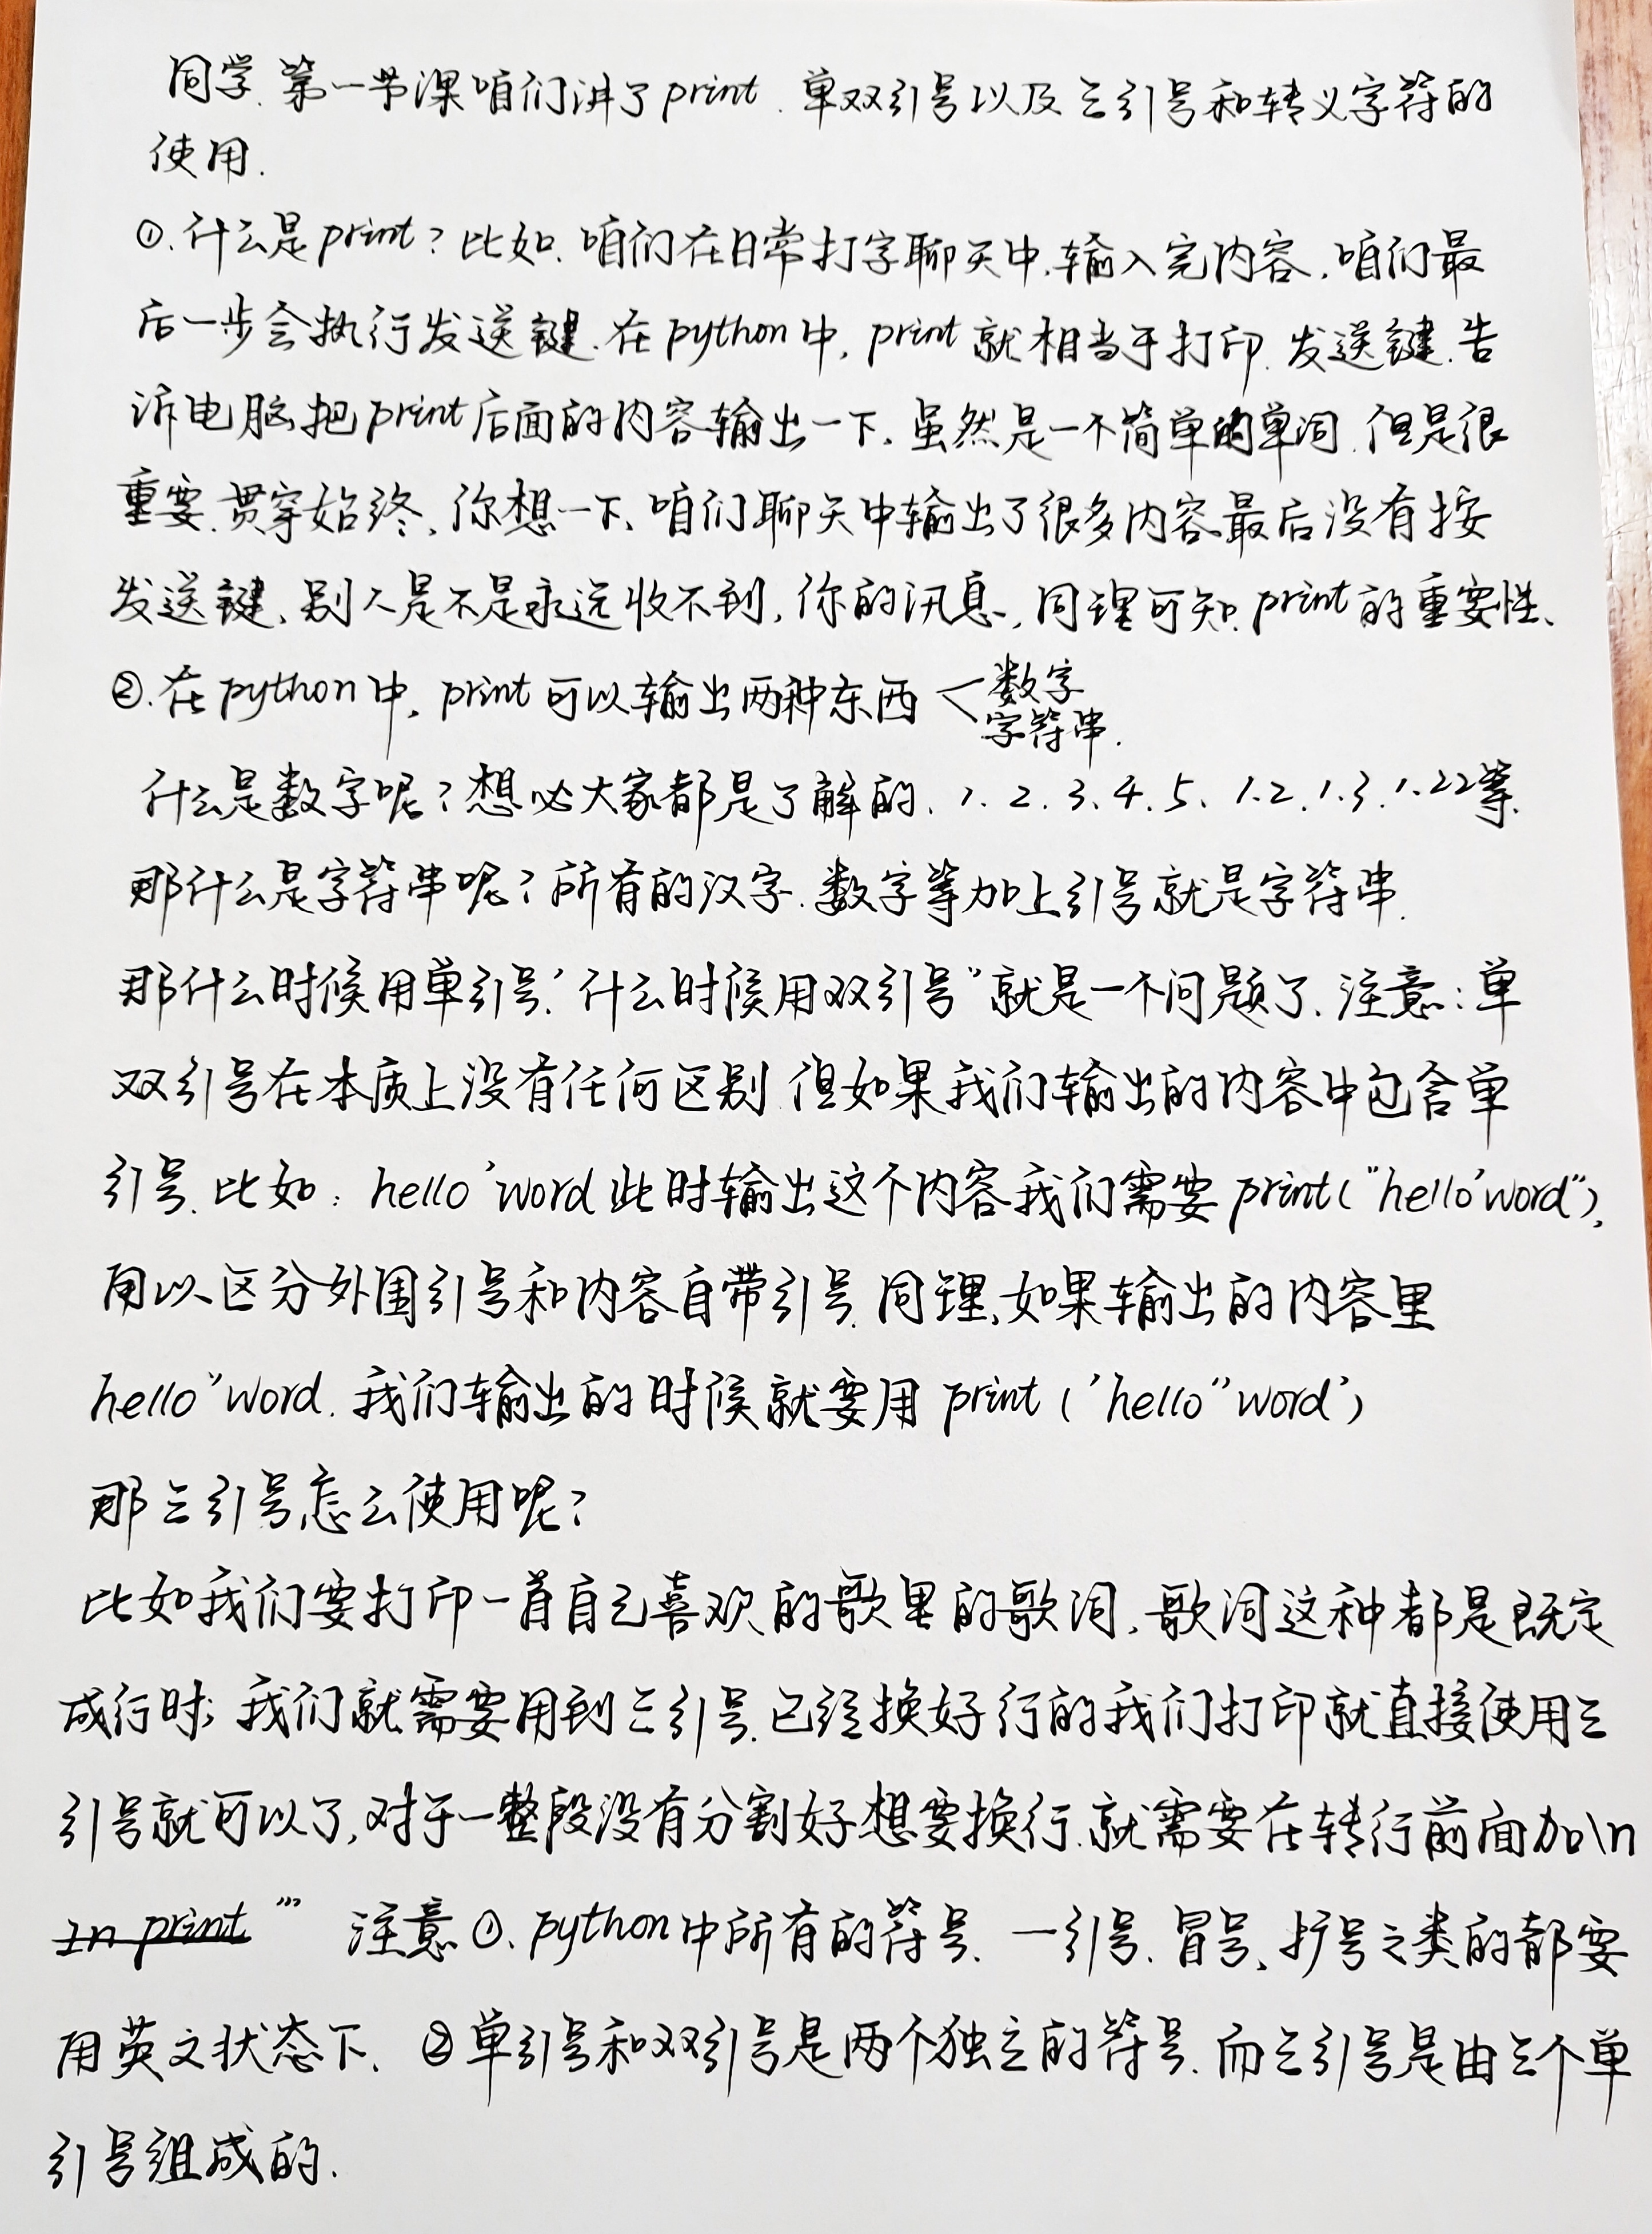 同学.第一节课咱们讲了print.单双引号以及三引号和转义字符的
使用.
①.什么是print?比如.咱们在日常打字聊天中,输入完内容,咱们最
后一步会执行发送键.在python中,print就相当于打印.发送键.告
诉电脑把print后面的内容输出一下.虽然是一个简单的单词.但是很
重要.贯穿始终,你想一下、咱们聊天中输出了很多内容最后没有按
发送键、别人是不是永远收不到,你的讯息,同理可知.print的重要性、
②.在python中,print可以输出两种东西<数字
字符串.
什么是数字呢?想必大家都是了解的、1.2.3.4.5、1.2.1.3.1.22等.
那什么是字符串呢?所有的汉字.数字等加上引号就是字符串.
那什么时候用单引号'什么时候用双引号"就是一个问题了.注意:单
双引号在本质上没有任何区别.但如果我们输出的内容中包含单
引号.比如:hello'word此时输出这个内容我们需要print("hello'word"),
用以区分外围引号和内容自带引号.同理,如果输出的内容里
hello"word.我们输出的时候就要用print('hello"word')
那三引号怎么使用呢?
比如我们要打印一首自己喜欢的歌里的歌词,歌词这种都是既定
成行时;我们就需要用到三引号.已经换好行的我们打印就直接使用三
引号就可以了,对于一整段没有分割好想要换行.就需要在转行前面加\n
In print ''' 注意①、python中所有的符号.一引号.冒号、扩号之类的都要
用英文状态下、②单引号和双引号是两个独立的符号.而三引号是由三个单
引号组成的.